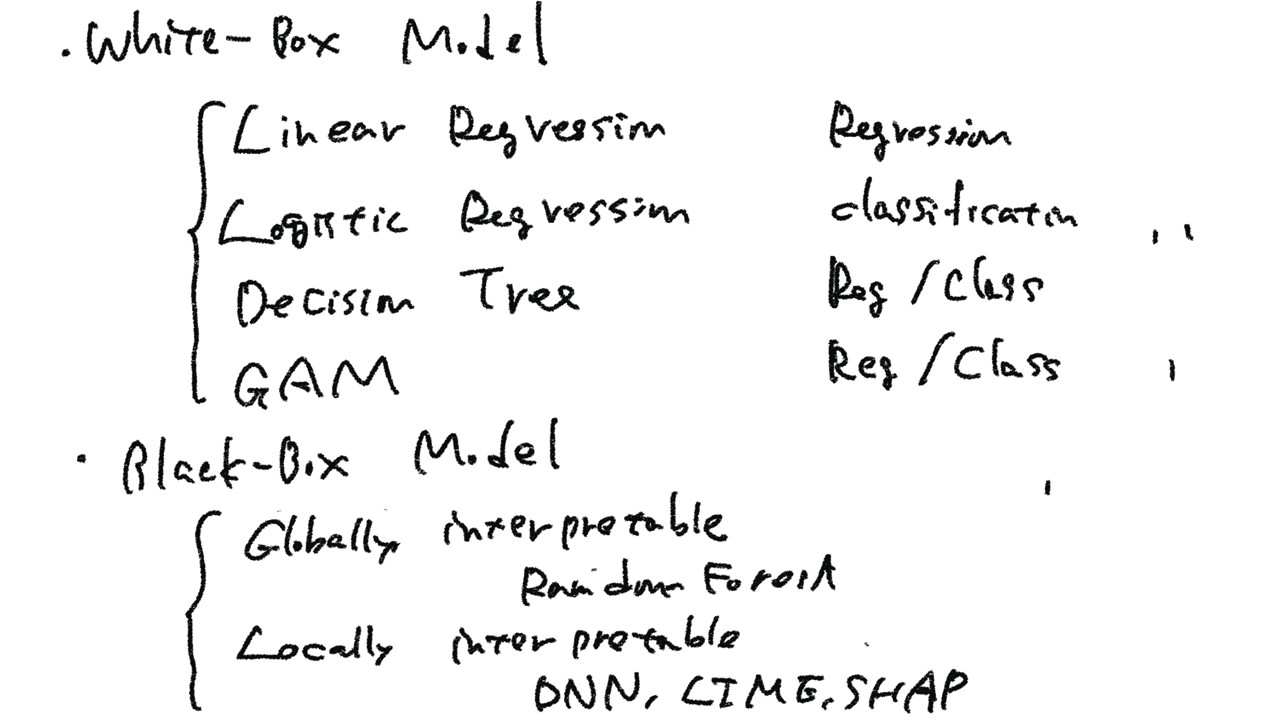 . White-Box Model
Linear Regression Regression
Logistic Regression classification
Decision Tree Reg / Class
GAM Reg / Class
· Black-Box Model
Globally interpretable
Random Forest
Locally interpretable
DNN, LIME, SHAP